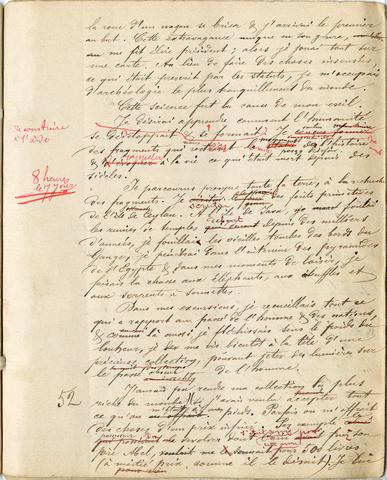 la roue d'un wagon se brisa & j'arrivai le premier
au but. Cette extravagance unique en son genre,
me fit élire président ; alors je jouai tout sur
une carte. Au lieu de faire des choses insensées,
ce qui était prescrit par les statuts, je m'occupai
d'archéologie le plus tranquillement du monde.
Cette science fut la cause de mon exil.
Je désirai apprendre comment l'humanité
se développait & se formait. Je
des fragments qui de l'histoire
& à la vie ce qui était mort depuis des
siècles.
reconstruire
à l'aide
8 heures
le 7 jour
Je parcourus presque toute la terre, à la recherche
des fragments. Je des forêts primitives
de l'île de Ceylan. A l'île de Java, je
les ruines de temples qui depuis des milliers
d'années, je fouillai les vieilles toules des bords du
Ganges, je pénétrai dans l'intérieur des pyramides
de l'Egypte & dans mes moments de loisirs, je
faisais la chasse aux éléphants, aux buffles et
aux serpents à sonnettes.
Dans mes excursions, je recueillais tout ce
qui a rapport au passé de l'homme & des nations,
& comme là aussi, je fléchissais sous le poids du
bonheur, je me vis bientôt à la tête d'une
précieuse collection, pouvant jeter des lumières sur
le passé de l'homme.
52
J'aurais pu rendre ma collection plus
riche du monde si j'avais voulu accepter tout
ce qu'on pieds. Parfois on m'offrait
des choses d'un prix infini. Par exemple
le revolver dont fut son
frère Abel, voulait me le donner pour 500 livres
(à moitié prix, comme il le disait). Je lui